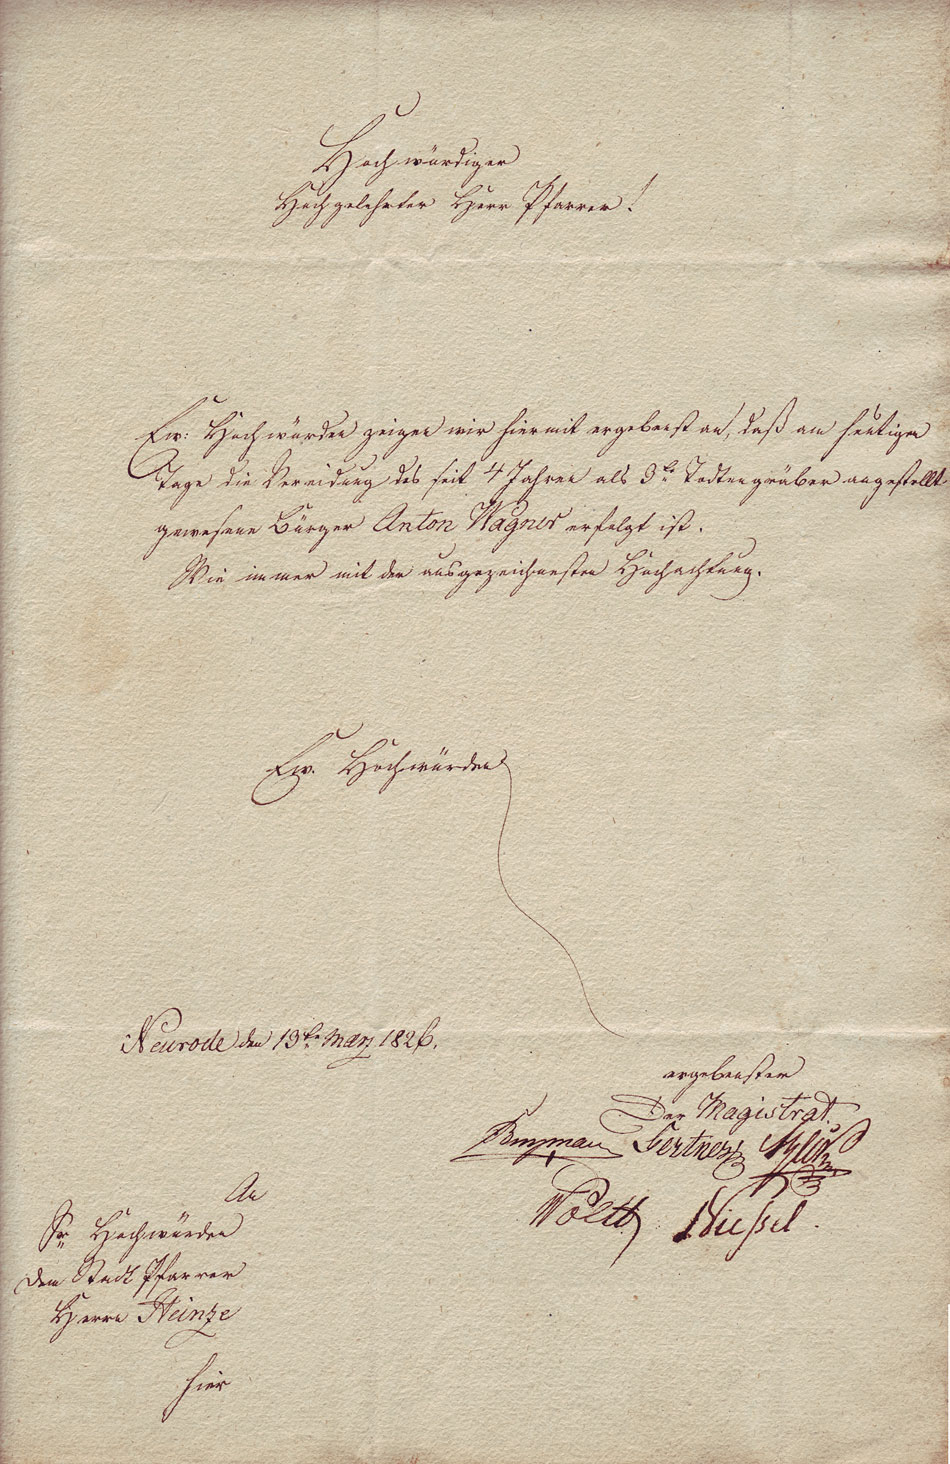 Hochwürdiger
Hochgelehrter Herr Pfarrer!
Ew: Hochwürden zeigen wir hiermit ergebenst an, daß am heutigen
Tage die Vereidung des seit 4 Jahren als 3te Todtengräber angestellt
gewesene Bürger Anton Wagner erfolgt ist.
Wie immer mit der ausgezeichnesten Hochachtung.
Ew. Hochwürden
Neurode den 13te März 1826.
ergebenster
Der Magistrat.
Gertner
Wolff Niessel.
An
Sr Hochwürden
dem Stadt Pfarrer
Herrn Heinze
hier